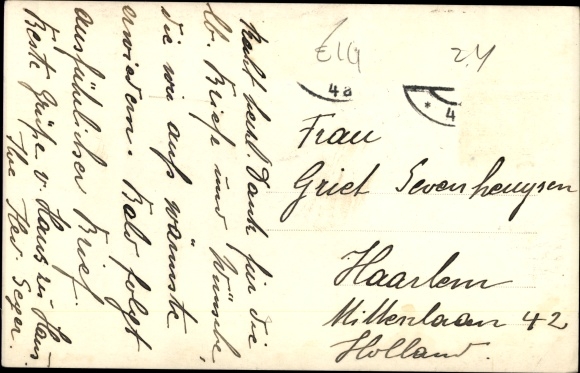 Recht herzl. Dank für die
lb. Briefe und Wünsche,
die wir aufs wärmste
erwiedern. Bald folgt
ausführlicher Brief.
Beste Grüße v. Haus zu Haus
Ihre Hed. Seger.
E14
2.4
4a
* 4
Frau
Griet Sevenheuysen
Haarlem
Holland.
42